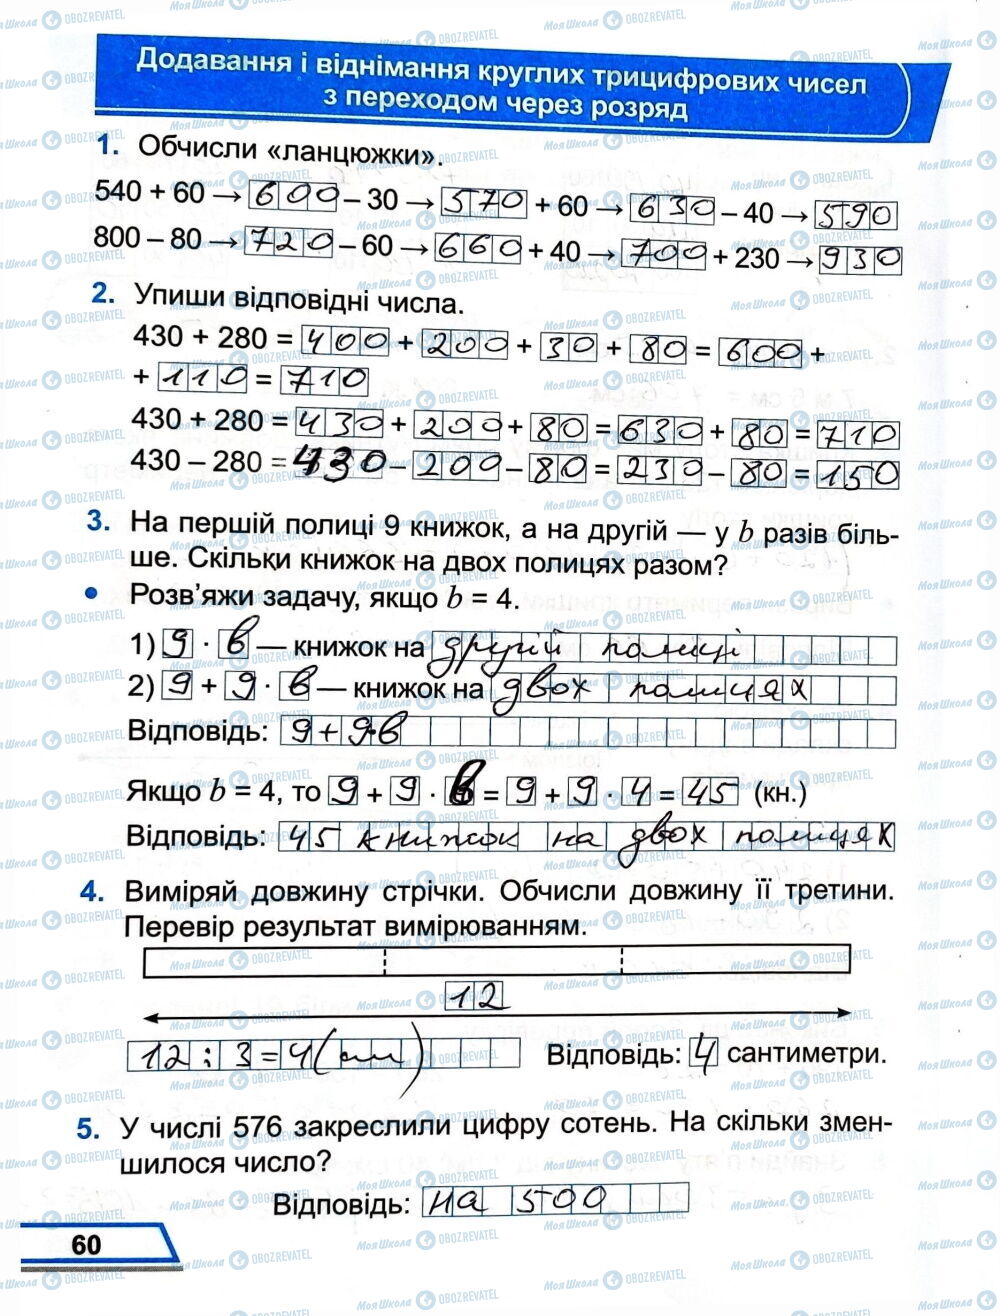 Додавання і віднімання круглих трицифрових чисел
з переходом через розряд
1. Обчисли «ланцюжки».
540 + 60 → 600 – 30 → 570 + 60 → 630 – 40 → 590
800 – 80 → 720 – 60 → 660 + 40 → 700 + 230 → 930
2. Упиши відповідні числа.
430 + 280 = 400 + 200 + 30 + 80 = 600 +
+ 110 = 710
430 + 280 = 430 + 200 + 80 = 630 + 80 = 710
430 – 280 = 430 – 200 – 80 = 230 – 80 = 150
3. На першій полиці 9 книжок, а на другій — у b разів біль-
ше. Скільки книжок на двох полицях разом?
• Розв’яжи задачу, якщо b = 4.
1) 9 · в — книжок на другій полиці
2) 9 + 9 · в — книжок на двох полицях
Відповідь: 9 + 9в
Якщо b = 4, то 9 + 9 · в = 9 + 9 · 4 = 45 (кн.)
Відповідь: 45 книжок на двох полицях
4. Виміряй довжину стрічки. Обчисли довжину її третини.
Перевір результат вимірюванням.
12
12 : 3 = 4 (см) Відповідь: 4 сантиметри.
5. У числі 576 закреслили цифру сотень. На скільки змен-
шилося число?
Відповідь: на 500
60
МояШкола OBOZREVATEL